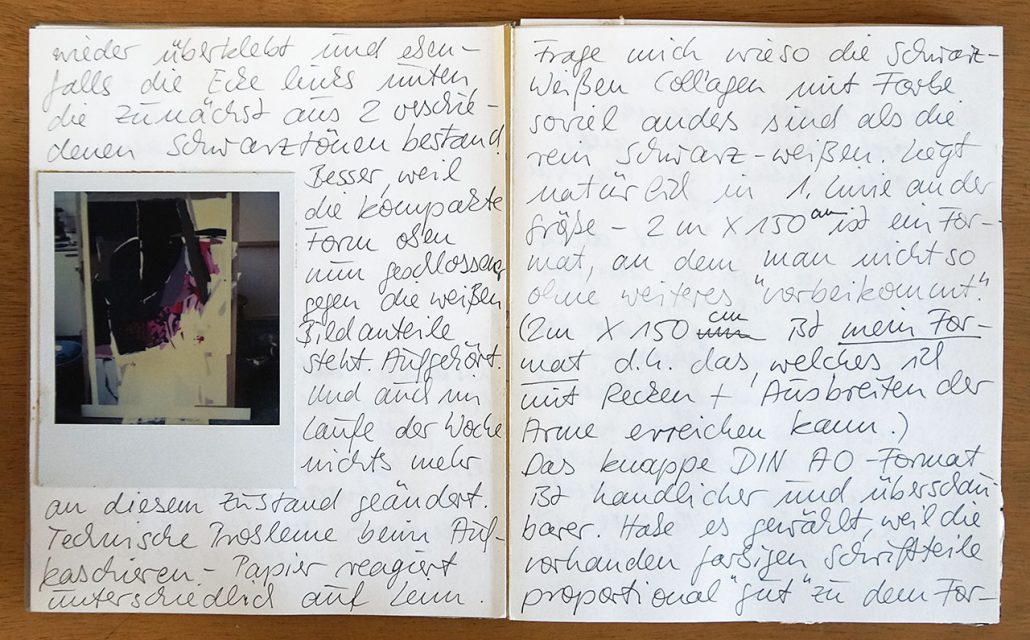 wieder überklebt und eben-
falls die Ecke links unten
die zunächst aus 2 verschie-
denen Schwarztönen bestand.
Besser, weil
die kompakte
Form oben
nun geschlossener
gegen die weißen
Bildanteile
steht. Aufgehört.
Und auch im
Laufe der Woche
nichts mehr
an diesem Zustand geändert.
Technische Probleme beim Auf-
kaschieren. - Papier reagiert
unterschiedlich auf Leim.
Frage mich wieso die schwarz-
weißen Collagen mit Farbe
soviel anders sind als die
rein schwarz-weißen. Liegt
natürlich in 1. Linie an der
Größe - 2 m X 150 cm ist ein For-
mat, an dem man nicht so
ohne weiteres "vorbeikommt".
(2m X 150 cm ist mein For-
mat d.h. das, welches ich
mit Recken + Ausbreiten der
Arme erreichen kann.)
Das knappe DIN A0-Format
ist handlicher und überschau-
barer. Habe es gewählt, weil die
vorhanden farbigen Schriftteile
proportional "gut" zu dem For-